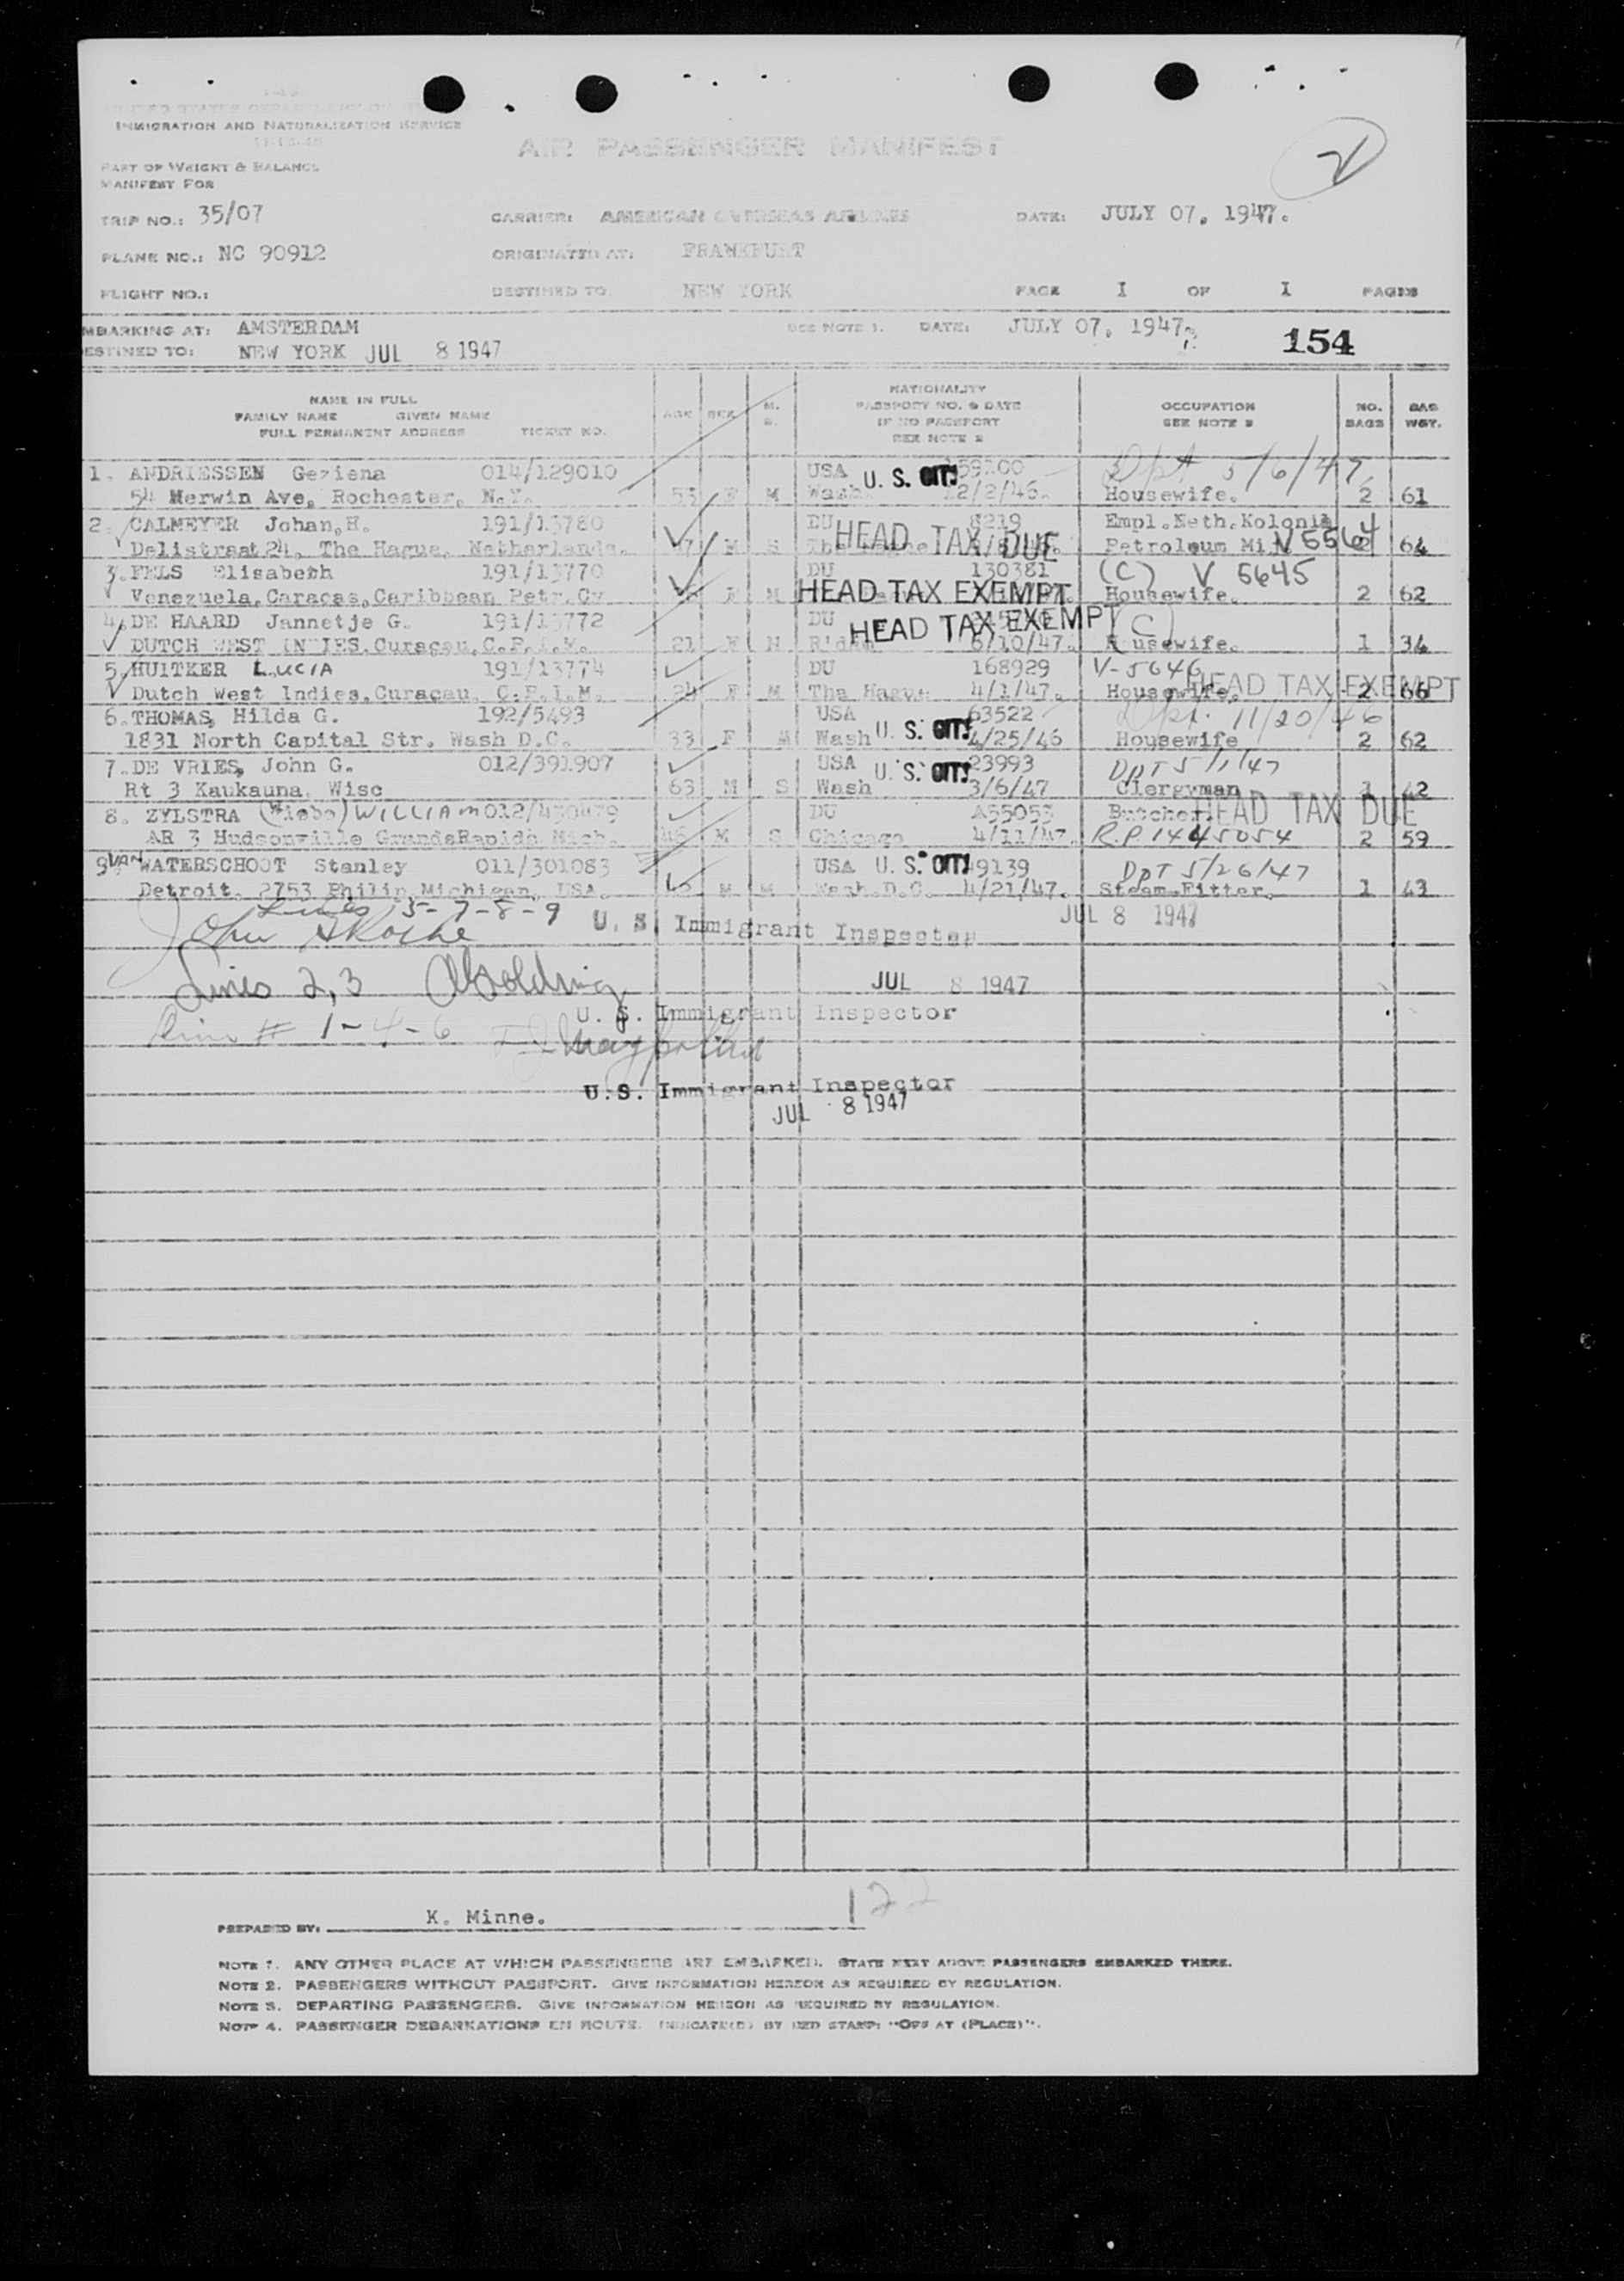 UNITED STATES DEPARTMENT OF
IMMIGRATION AND NATURALIZATION SERVICE
AIR PASSENGER MANIFEST
PART OF WEIGHT & BALANCE
MANIFEST FOR
TRIP NO.: 35/07 CARRIER: AMERICAN OVERSEAS AIRLINES DATE: JULY 07. 1947.
PLANE NO.: NC 90912 ORIGINATED AT: FRANKFURT
FLIGHT NO.: DESTINED TO NEW YORK PAGE I OF I PAGES
MBARKING AT: AMSTERDAM SEE NOTE 1. DATE: JULY 07. 1947.
ESTINED TO: NEW YORK JUL 8 1947 154
NAME IN FULL
FAMILY NAME GIVEN NAME
FULL PERMANENT ADDRESS TICKET NO.
AGE SEX M. S.
NATIONALITY
PASSPORT NO. & DATE
IF NO PASSPORT
SEE NOTE 2
OCCUPATION
SEE NOTE 3
NO. BAGS
BAG WGT.
1. ANDRIESSEN Geziena 014/129010 USA U. S. CIT. Dpt 5/6/47
54 Merwin Ave. Rochester. N.Y. 53 F M Wash. 12/2/46. Housewife. 2 61
2. CALMEYER Johan.H. 191/13780 DU 8219 Empl.Neth.Kolonial
Delistraat 24. The Hague. Netherlands. M S HEAD TAX DUE Petroleum Mi. V 5564 2 64
3. FELS Elisabeth 191/13770 DU 130381 (C) V 5645
Venezuela.Caracas.Caribbean Petr.Cy F M HEAD TAX EXEMPT Housewife. 2 62
4. DE HAARD Jannetje G. 191/13772 DU HEAD TAX EXEMPT (C)
DUTCH WEST INDIES.Curaçau.C.P.I.M. 21 F M R'dam 6/10/47. Housewife. 1 34
5. HUITKER LUCIA 191/13774 DU 168929 V-5646
Dutch West Indies.Curaçau. C.P.I.M. 24 F M The Hague 4/1/47. Housewife. HEAD TAX EXEMPT 2 66
6. THOMAS, Hilda G. 192/5493 USA 63522 Dpt. 11/20/46
1831 North Capital Str. Wash D.C. 33 F M Wash U. S. CIT. 4/25/46 Housewife 2 62
7. DE VRIES, John G. 012/391907 USA U. S. CIT. 23993 DPT 5/1/47
Rt 3 Kaukauna. Wisc 63 M S Wash 3/6/47 Clergyman 1 42
8. ZYLSTRA (Wiebe) WILLIAM 012/430479 DU A55053 Butcher. HEAD TAX DUE
AR 3 Hudsonville GrandsRapids Mich. 46 M S Chicago 4/11/47. R.P. 1445054 2 59
9. VAN WATERSCHOOT Stanley 011/301083 USA U. S. CIT. 49139 DPT 5/26/47
Detroit. 2753 Philip.Michigan. USA. M M Wash.D.C. 4/21/47. Steam.Fitter. 1 43
Lines 5-7-8-9 U. S. Immigrant Inspector JUL 8 1947
Lines 2,3 JUL 8 1947
U. S. Immigrant Inspector
1-4-6
U.S. Immigrant Inspector
JUL 8 1947
PREPARED BY: K. Minne. 122
NOTE 1. ANY OTHER PLACE AT WHICH PASSENGERS ARE EMBARKED. STATE NEXT ABOVE PASSENGERS EMBARKED THERE.
NOTE 2. PASSENGERS WITHOUT PASSPORT. GIVE INFORMATION HEREON AS REQUIRED BY REGULATION.
NOTE 3. DEPARTING PASSENGERS. GIVE INFORMATION HEREON AS REQUIRED BY REGULATION.
NOTE 4. PASSENGER DEBARKATIONS EN ROUTE. INDICATE(D) BY RED STAMP: "OFF AT (PLACE)".